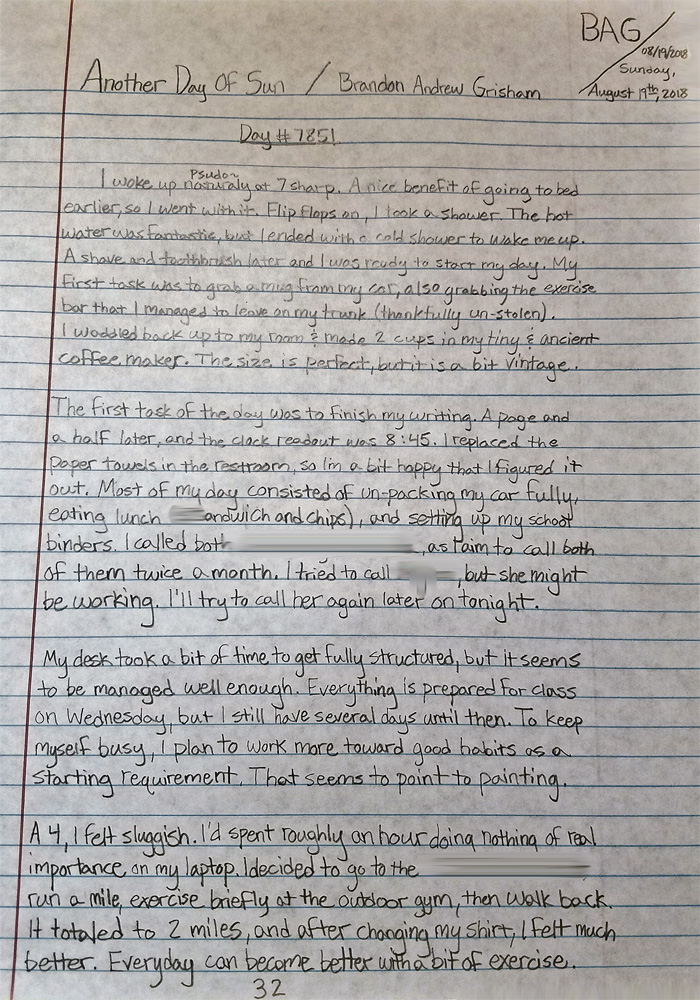 BAG
08/19/2018
Sunday,
August 19th, 2018
Another Day Of Sun / Brandon Andrew Grisham
Day # 7851
Psudo~
I woke up naturaly at 7 sharp. A nice benefit of going to bed
earlier, so I went with it. Flip flops on, I took a shower. The hot
water was fantastic, but I ended with a cold shower to wake me up.
A shave and toothbrush later and I was ready to start my day. My
first task was to grab a mug from my car, also grabbing the exercise
bar that I managed to leave on my trunk (thankfully un-stolen).
I woddled back up to my room & made 2 cups in my tiny & ancient
coffee maker. The size is perfect, but it is a bit vintage.
The first task of the day was to finish my writing. A page and
a half later, and the clock readout was 8:45. I replaced the
paper towels in the restroom, so I'm a bit happy that I figured it
out. Most of my day consisted of un-packing my car fully,
eating lunch andwich and chips), and setting up my school
binders. I called both , as I aim to call both
of them twice a month. I tried to call , but she might
be working. I'll try to call her again later on tonight.
My desk took a bit of time to get fully structured, but it seems
to be managed well enough. Everything is prepared for class
on Wednesday, but I still have several days until then. To keep
myself busy, I plan to work more toward good habits as a
starting requirement. That seems to point to painting.
A 4, I felt sluggish. I'd spent roughly an hour doing nothing of real
importance on my laptop. I decided to go to the
run a mile, exercise briefly at the outdoor gym, then walk back.
It totaled to 2 miles, and after changing my shirt, I felt much
better. Everyday can become better with a bit of exercise.
32